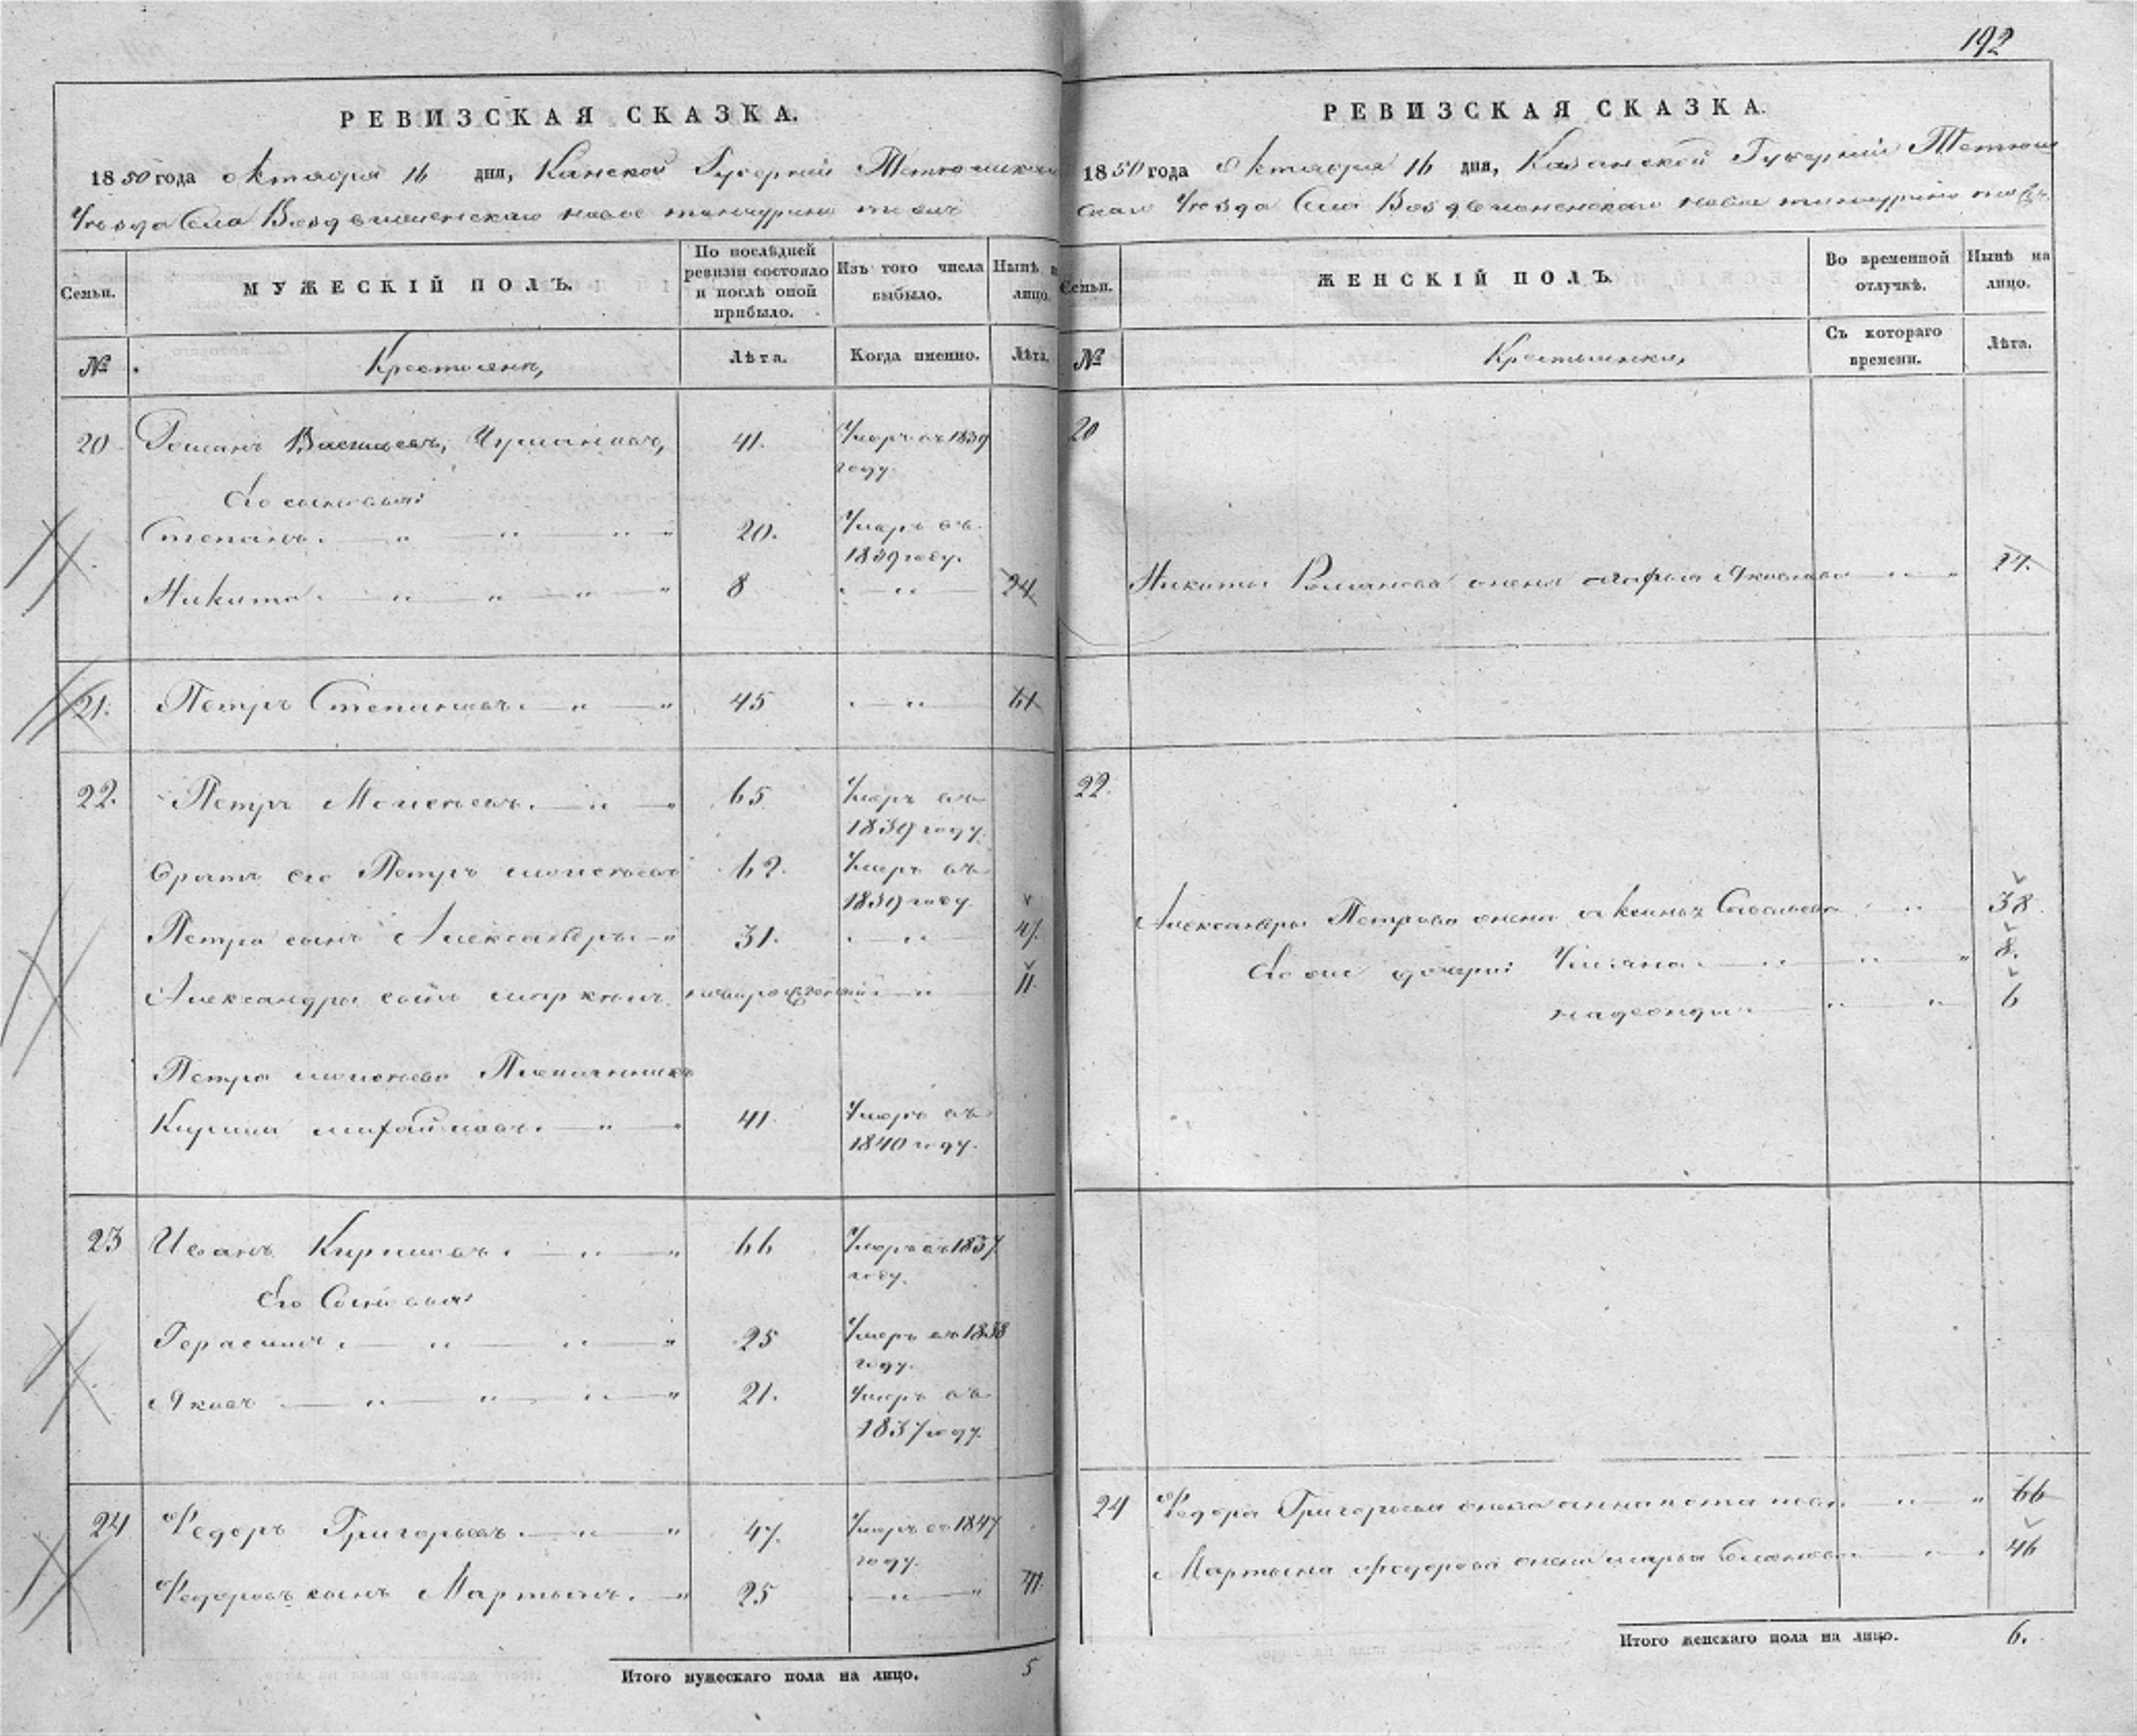 192
РЕВИЗСКАЯ СКАЗКА.
1850 года Октября 16 дня, Канской Губерніи Тетюшска
Уезда Села Воздвиженскаго новое тинчурино тожъ
Семьи.
МУЖЕСКІЙ ПОЛЪ.
По послѣдней ревизіи состояло и послѣ оной прибыло.
Изъ того числа выбыло.
Нынѣ на лицо.
№
Крестьянъ,
Лѣта.
Когда именно.
Лѣта.
20 Романъ Васильевъ, Чумановъ, 41. Умеръ въ 1839
году.
Его сыновья:
Степанъ. 20. Умеръ въ
1839 году.
Никита. 8 24
21. Петръ Степановъ. 45 61
22. Петръ Моисеевъ. 65 Умеръ въ
1839 году.
братъ его Петръ моисеевъ 62. Умеръ въ
1839 году.
Петра сынъ Александръ 31. 47
Александра сынъ маркелъ новорожденный 11
Петра моисеева Племянникъ
Кирила михайловъ. 41 Умеръ въ
1840 году.
23 Иванъ Кириловъ. 66 Умеръ въ 1837
году.
Его Сыновья:
Герасимъ. 25 Умеръ въ 1838
году.
Яковъ 21. Умеръ въ
1837 году.
24 Федоръ Григорьевъ. 47. Умеръ въ 1847
году.
Федоровъ сынъ Мартынъ. 25 41
Итого мужескаго пола на лицо. 5
РЕВИЗСКАЯ СКАЗКА.
1850 года Октября 16 дня, Казанской Губерніи Тетюш
скаго Уезда Села Воздвиженскаго новое тинчурино тожъ
Семьи.
ЖЕНСКІЙ ПОЛЪ.
Во временной отлучкѣ.
Нынѣ на лицо.
№
Крестьянки,
Съ котораго времени.
Лѣта.
20
Никиты Романова жена агафья Яковлева 27.
22.
Александры Петрова жена Савельева 38
Его же дочери: Ульяна 8.
надежда 6
24 Федора Григорьева жена анна 66
Мартына Федорова жена марья 46
Итого женскаго пола на лицо. 6.